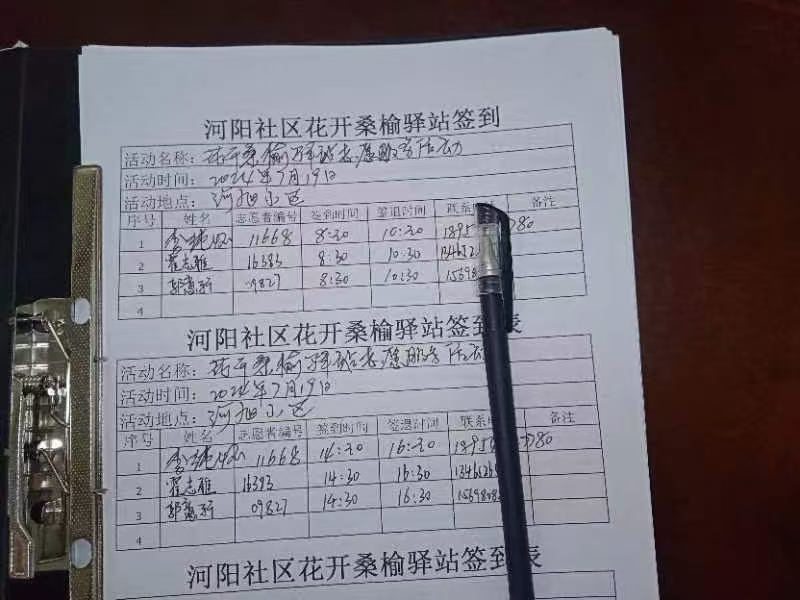 河阳社区花开桑榆驿站签到
活动名称：花开桑榆驿站志愿服务活动
活动时间：2024年7月19日
活动地点：河阳小区
序号 姓名 志愿者编号 签到时间 签退时间 联系 备注
1 11668 8:30 10:30 1895 780
2 翟志雅 16383 8:30 10:30
3 郭慧新 09827 8:30 10:30 1569
4
河阳社区花开桑榆驿站签到表
活动名称：花开桑榆驿站志愿服务活动
活动时间：2024年7月19日
活动地点：河阳小区
序号 姓名 志愿者编号 签到时间 签退时间 联系 备注
1 11668 14:30 16:30 1895 780
2 翟志雅 16383 14:30 16:30 13465
3 郭慧新 09827 14:30 16:30 1569
4
河阳社区花开桑榆驿站签到表